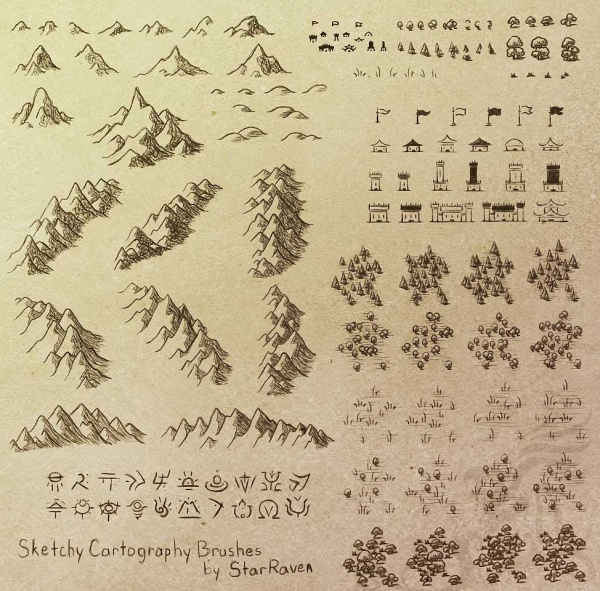 Sketchy Cartography Brushes
by StarRaven